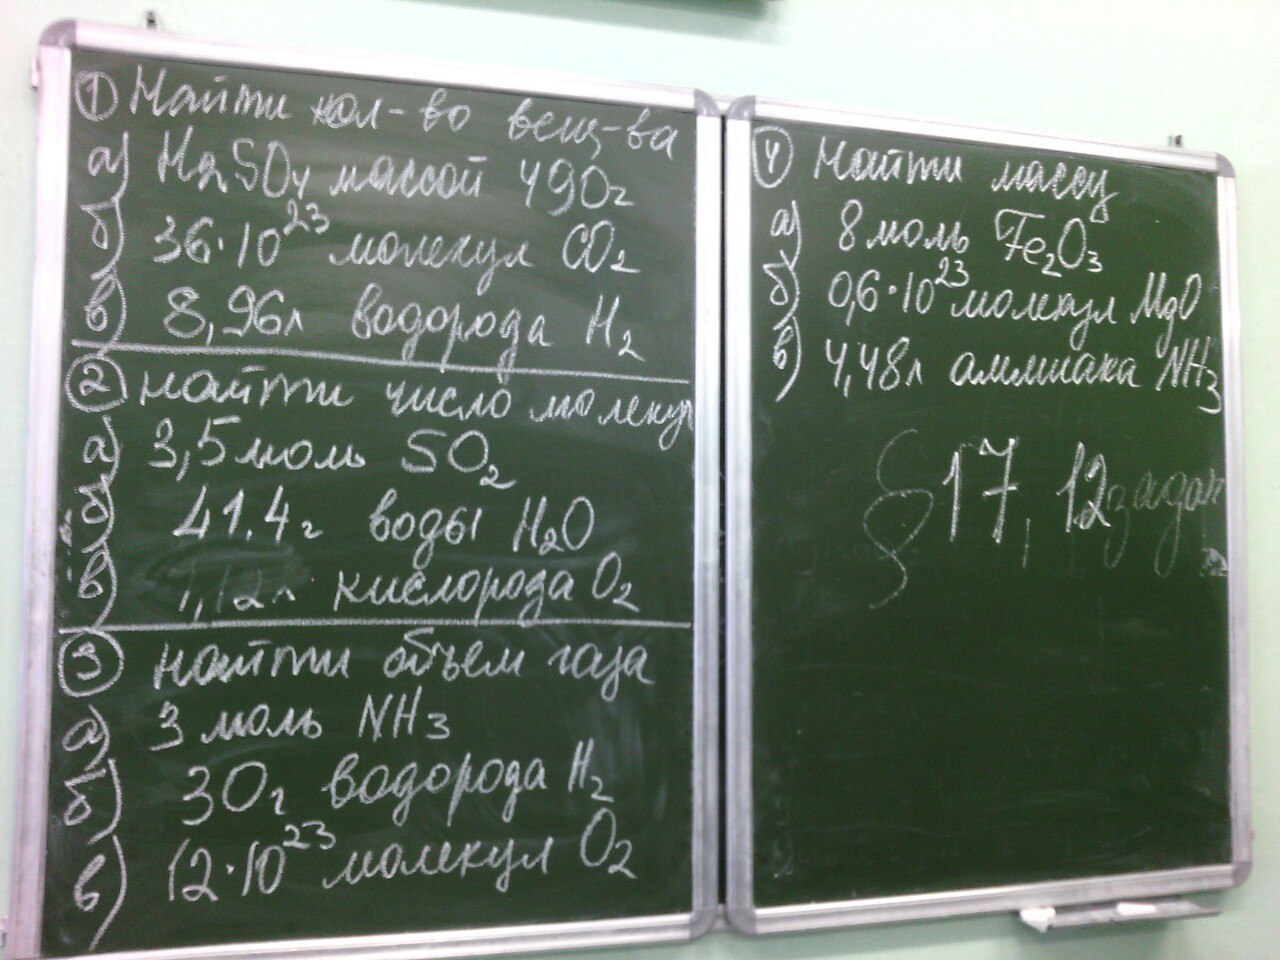 ① Найти кол-во вещ-ва
а) H₂SO₄ массой 490г
б) 36·10²³ молекул CO₂
в) 8,96л водорода H₂
② найти число молекул
а) 3,5 моль SO₂
б) 41.4г воды H₂O
в) 1,12л кислорода O₂
③ найти объем газа
а) 3 моль NH₃
б) 30г водорода H₂
в) 12·10²³ молекул O₂
④ Найти массу
а) 8 моль Fe₂O₃
б) 0,6·10²³ молекул MgO
в) 4,48л аммиака NH₃
§17, 12 задач